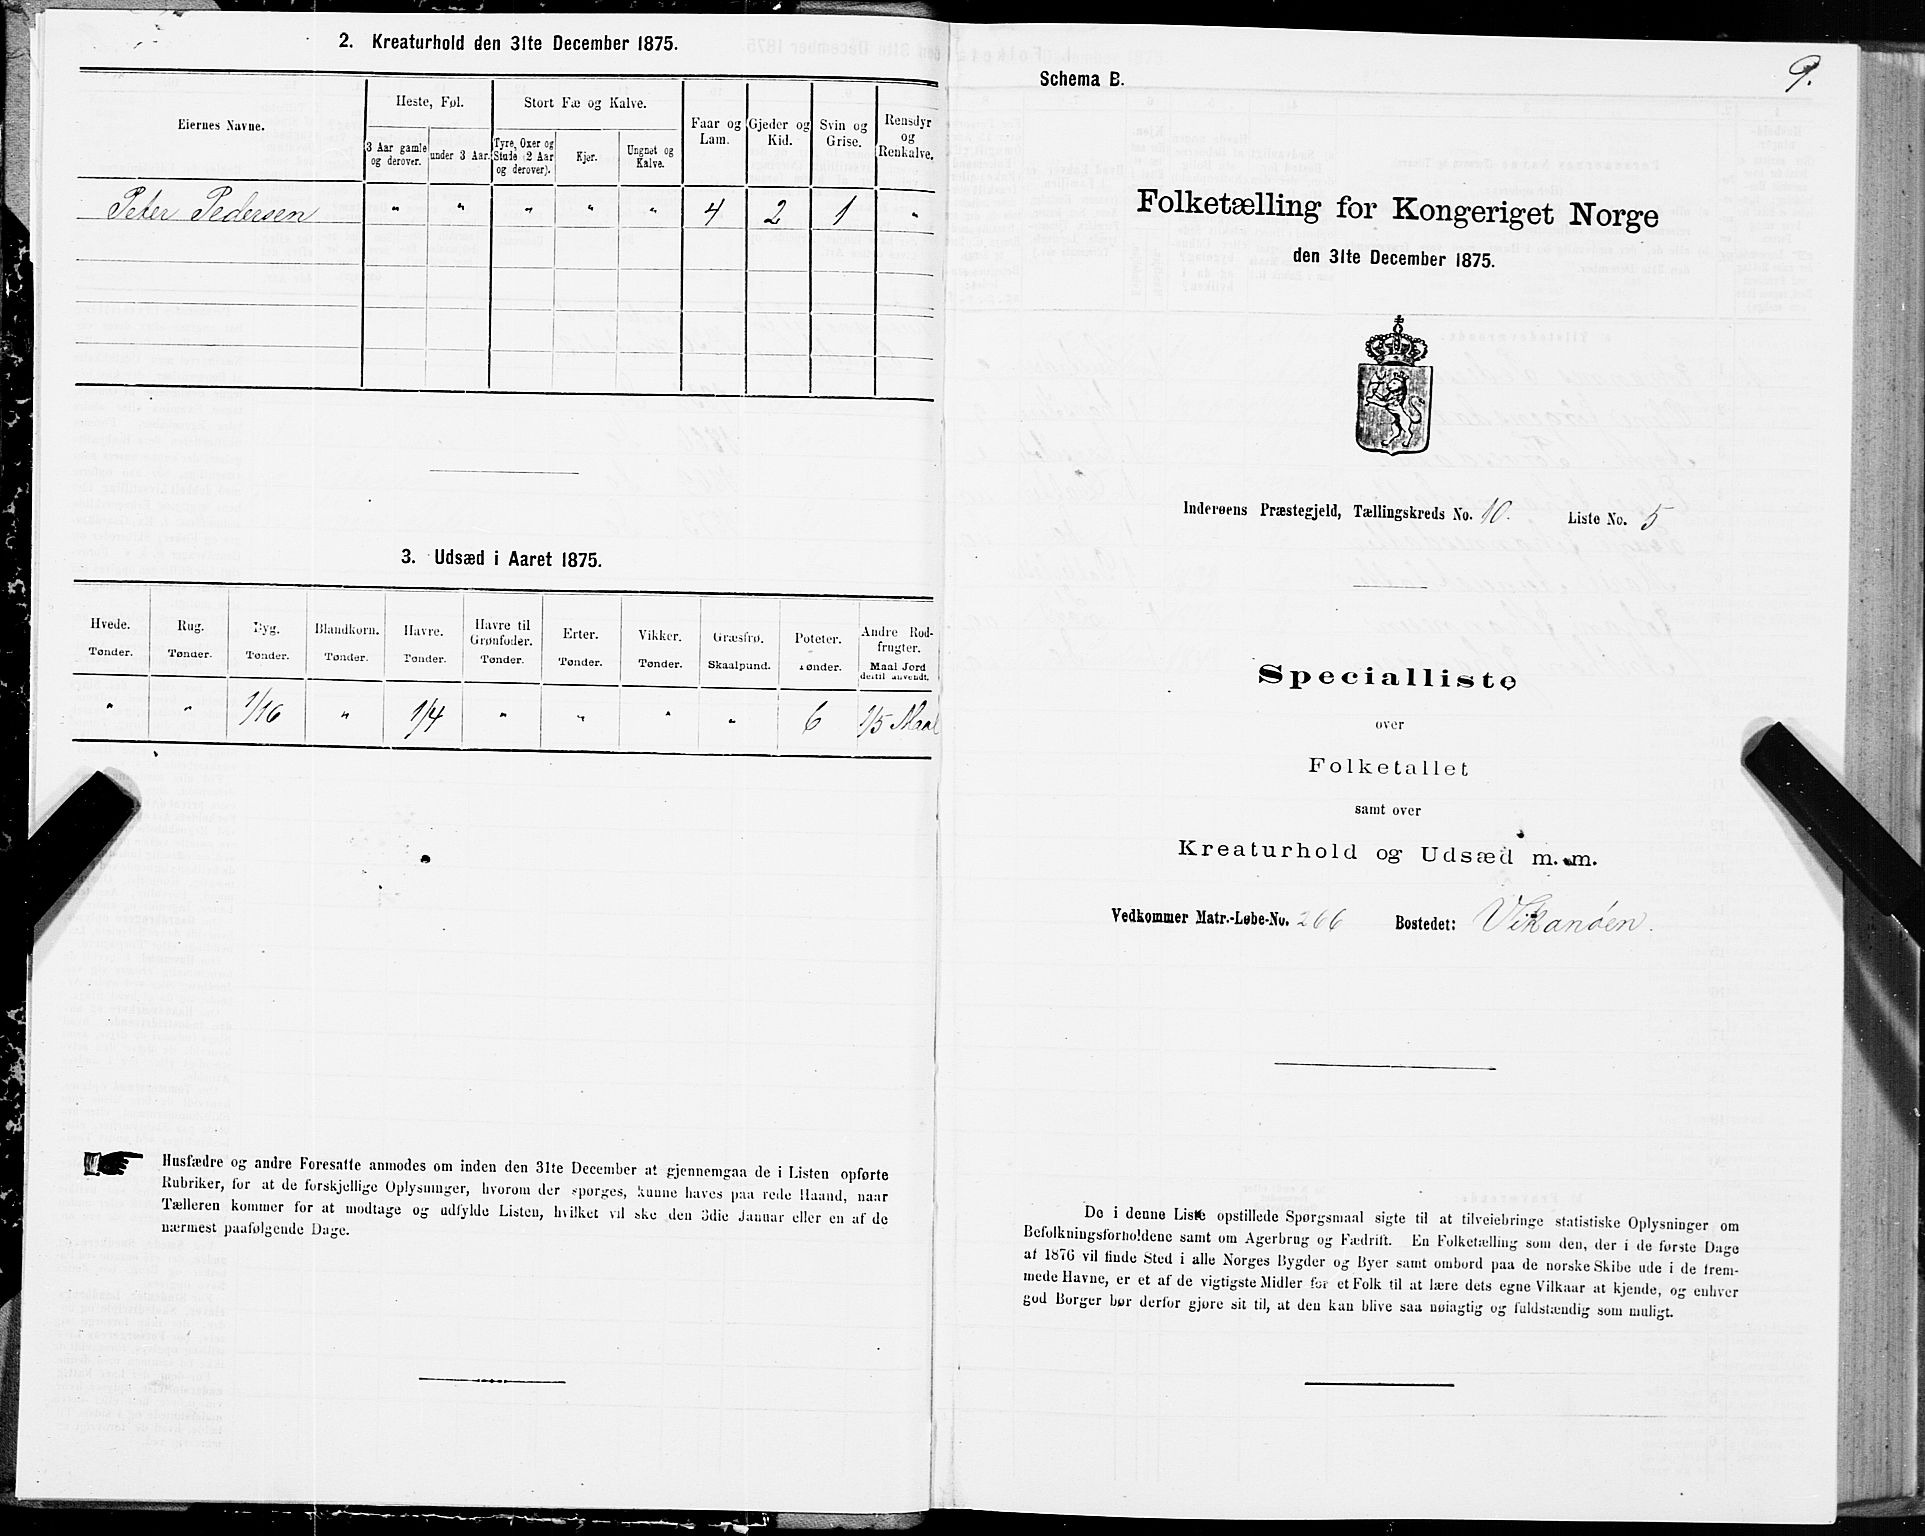 2. Kreaturhold den 31te December 1875.
Eiernes Navne.
Heste, Føl.
Stort Fæ og Kalve.
Faar og Lam.
Gjeder og Kid.
Svin og Grise.
Rensdyr og Renkalve.
3 Aar gamle og derover.
under 3 Aar.
Tyre, Oxer og Stude (2 Aar og derover).
Kjør.
Ungnet og Kalve.
Peter Pedersen " " " " " 4 2 1 "
3. Udsæd i Aaret 1875.
Hvede. Rug. Byg. Blandkorn. Havre. Havre til Grønfoder. Erter. Vikker. Græsfrø. Poteter. Andre Rodfrugter.
Tønder. Tønder. Tønder. Tønder. Tønder. Tønder. Tønder. Tønder. Skaalpund. Tønder. Maal Jord dertil anvendt.
" " 1/16 " 1/4 " " " " 6 1/5 Maal
Husfædre og andre Foresatte anmodes om inden den 31te December at gjennemgaa de i Listen opførte
Rubriker, for at de forskjellige Oplysninger, hvorom der spørges, kunne haves paa rede Haand, naar
Tælleren kommer for at modtage og udfylde Listen, hvilket vil ske den 3die Januar eller en af de
nærmest paafølgende Dage.
9.
Schema B.
Folketælling for Kongeriget Norge
den 31te December 1875.
Inderøens Præstegjeld, Tællingskreds No. 10. Liste No. 5
Specialliste
over
Folketallet
samt over
Kreaturhold og Udsæd m. m.
Vedkommer Matr.-Løbe-No. 266 Bostedet: Vikanöen.
De i denne Liste opstillede Spørgsmaal sigte til at tilveiebringe statistiske Oplysninger om
Befolkningsforholdene samt om Agerbrug og Fædrift. En Folketælling som den, der i de første Dage
af 1876 vil finde Sted i alle Norges Bygder og Byer samt ombord paa de norske Skibe ude i de frem-
mede Havne, er et af de vigtigste Midler for et Folk til at lære dets egne Vilkaar at kjende, og enhver
god Borger bør derfor gjøre sit til, at den kan blive saa nøiagtig og fuldstændig som muligt.